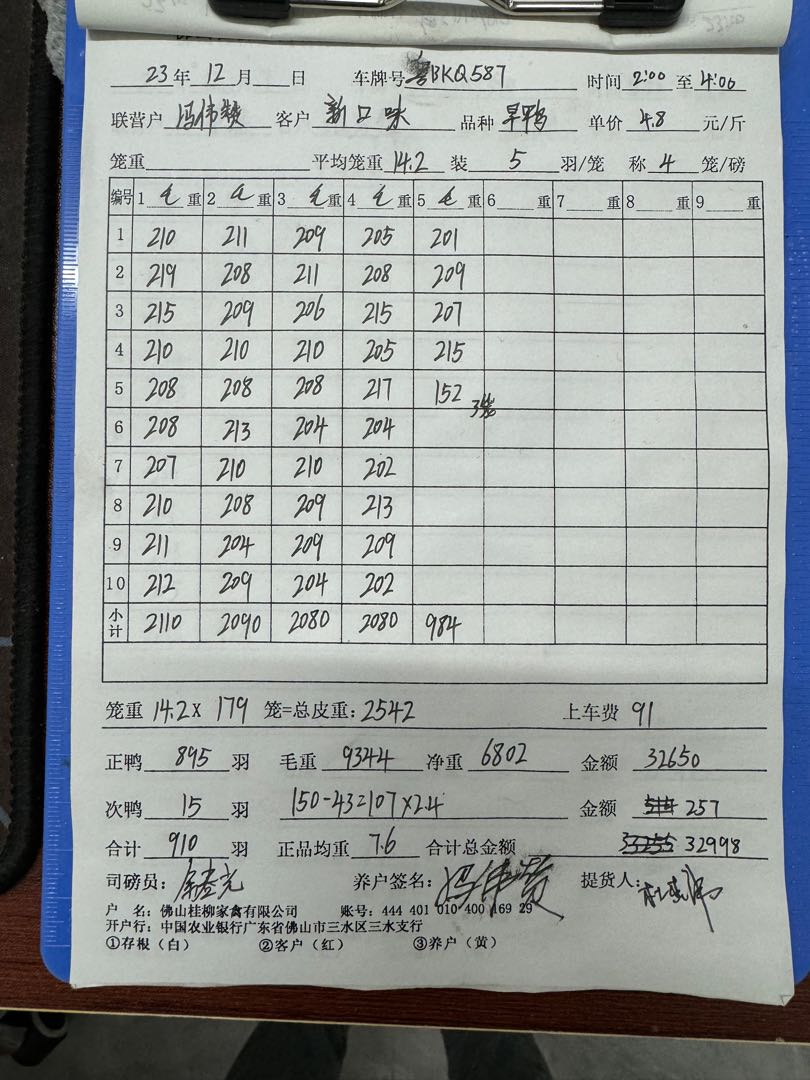 23年 12月 日 车牌号 粤BKQ587 时间 2:00 至 4:00
联营户 冯伟赞 客户 新口味 品种 旱鸭 单价 4.8 元/斤
笼重 平均笼重 14.2 装 5 羽/笼 称 4 笼/磅
编号 1 毛 重 2 毛 重 3 毛 重 4 毛 重 5 毛 重 6 重 7 重 8 重 9 重
1 210 211 209 205 201
2 219 208 211 208 209
3 215 209 206 215 207
4 210 210 210 205 215
5 208 208 208 217 152 3笼
6 208 213 204 204
7 207 210 210 202
8 210 208 209 213
9 211 204 209 209
10 212 209 204 202
小计 2110 2090 2080 2080 984
笼重 14.2 X 179 笼=总皮重: 2542 上车费 91
正鸭 895 羽 毛重 9344 净重 6802 金额 32650
次鸭 15 羽 150-43=107×2.4 金额 514 257
合计 910 羽 正品均重 7.6 合计总金额 33255 32998
司磅员: 养户签名: 冯伟赞 提货人:
户 名: 佛山桂柳家禽有限公司 账号: 444 401 010 400 169 29
开户行: 中国农业银行广东省佛山市三水区三水支行
①存根(白) ②客户(红) ③养户(黄)